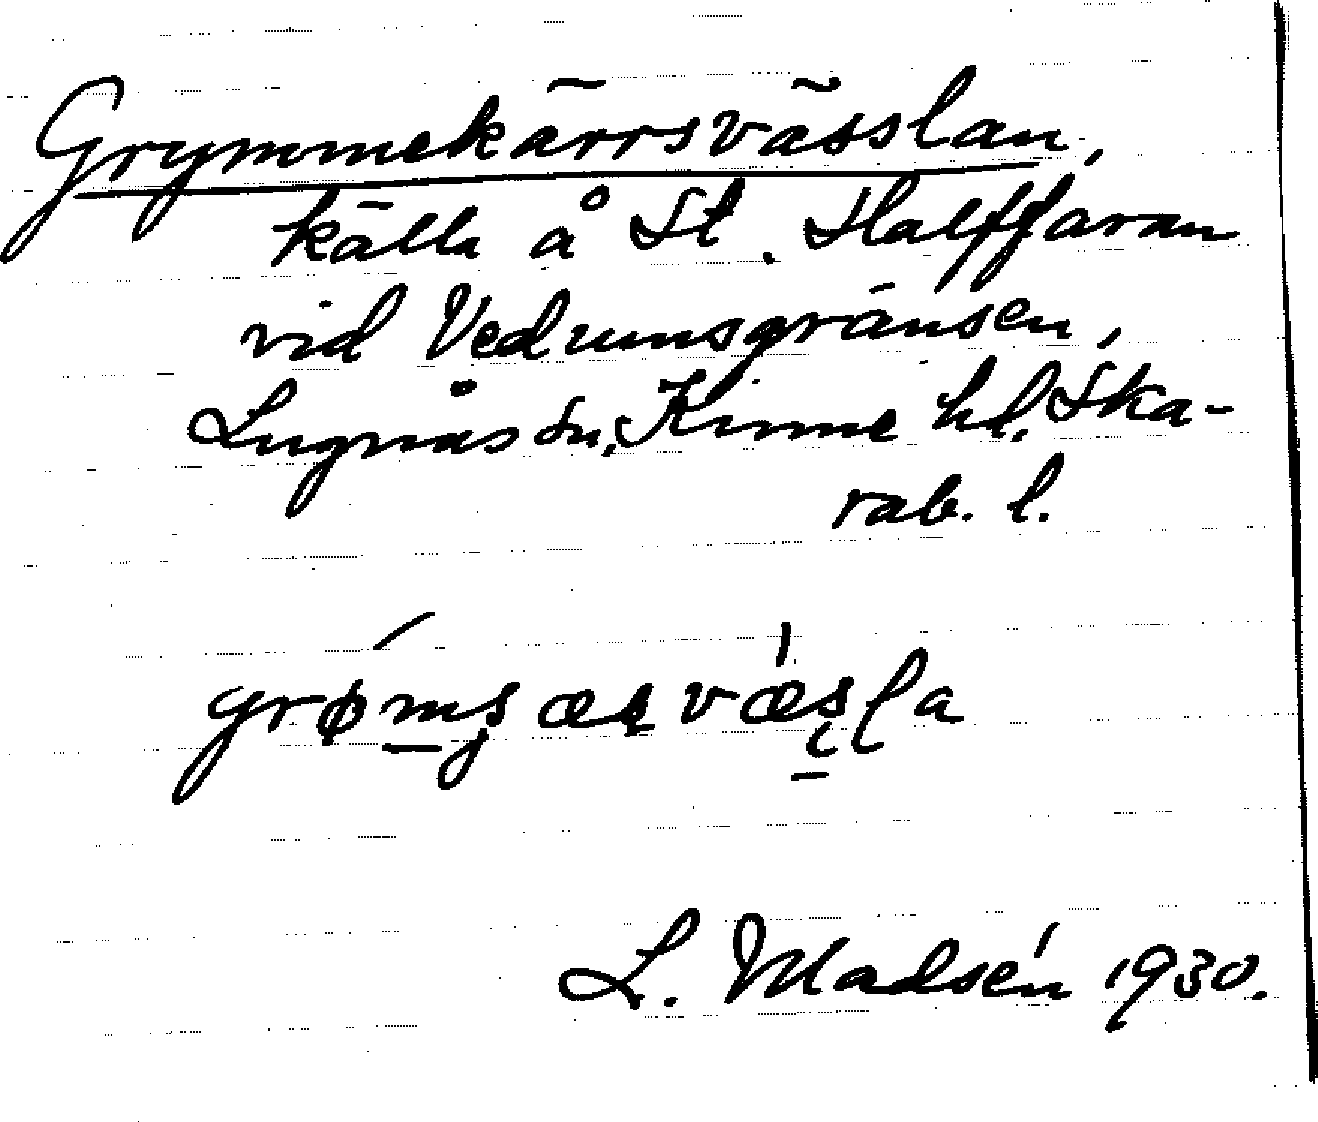 Grymmekärrsvässlan,
källa å St. Stalffaran
vid Vedumsgränsen,
Lugnås sn, Kinne hd, Ska-
rab. l.
L. Madsén 1930.